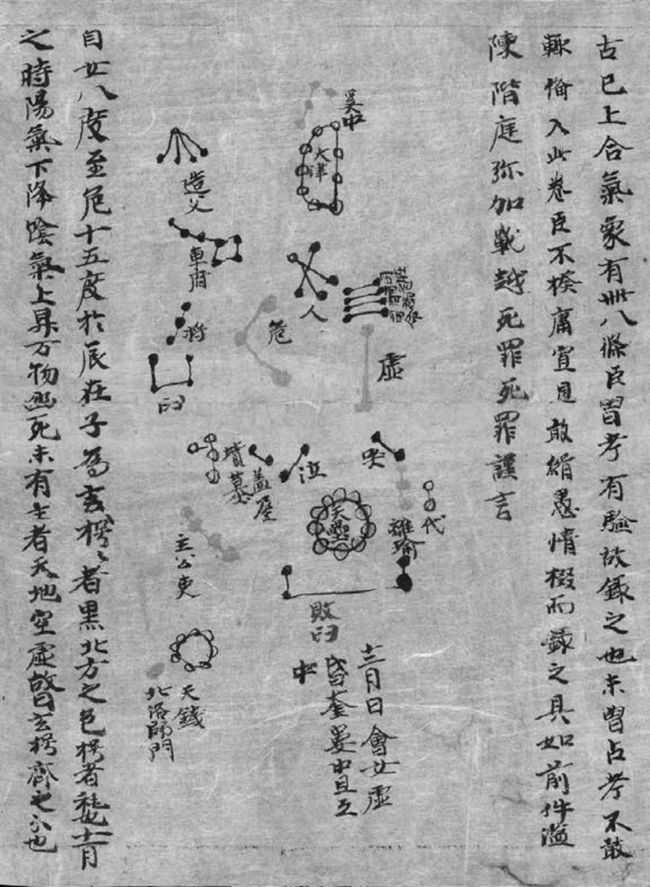 古已上合氣象有卌八條臣曽考有驗故録之也未曽占考不敢
輒備入此卷臣不揆庸冝見敢緝愚情掇而録之具如前件濫
陳階庭弥加戰越死罪死罪謹言
吴中
天津
造父
車府
人
虛
危
将
臼
哭
泣
墳墓
盖屋
天壘
離瑜
代
主公吏
敗臼
天錢
北落師門
十二月日會女虛
昏奎婁中旦互
中
自女八度至危十五度於辰在子為玄枵々者黑北方之色枵者耗也十一月
之時陽氣下降陰氣上昇万物幽死未有生者天地空虛故曰玄枵齊之分也